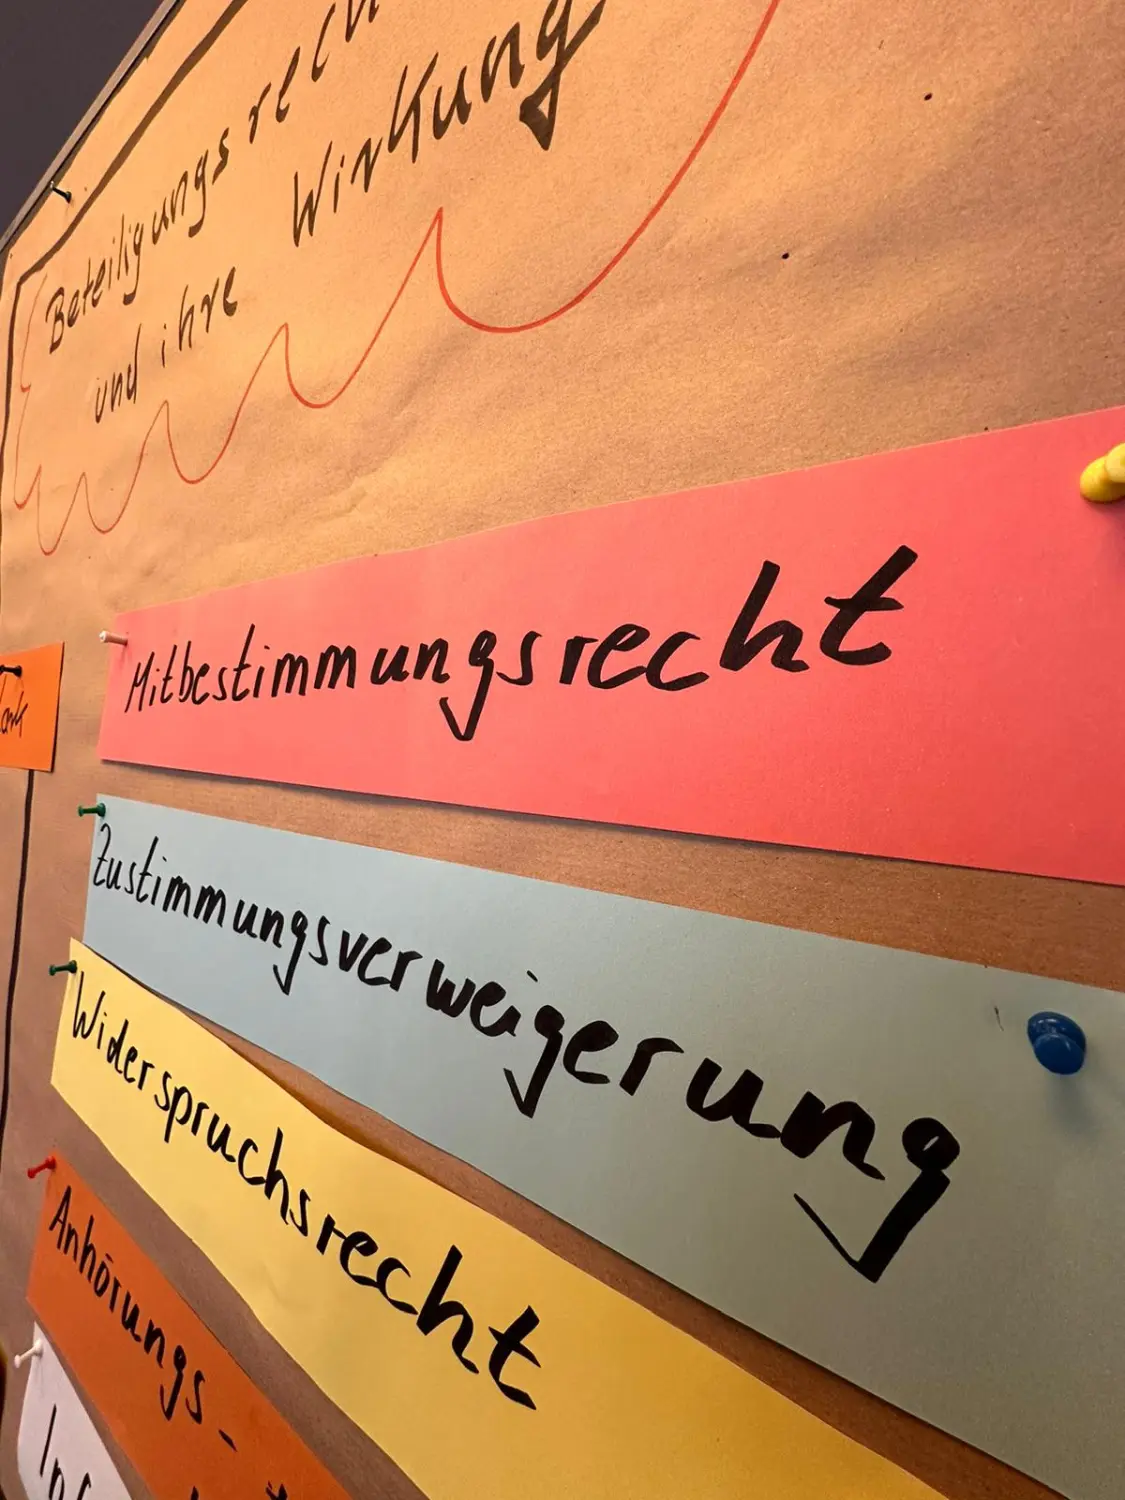 Beteiligungsrech
und ihre Wirkung
Mitbestimmungsrecht
Zustimmungsverweigerung
Widerspruchsrecht
Anhörungs-
Inf